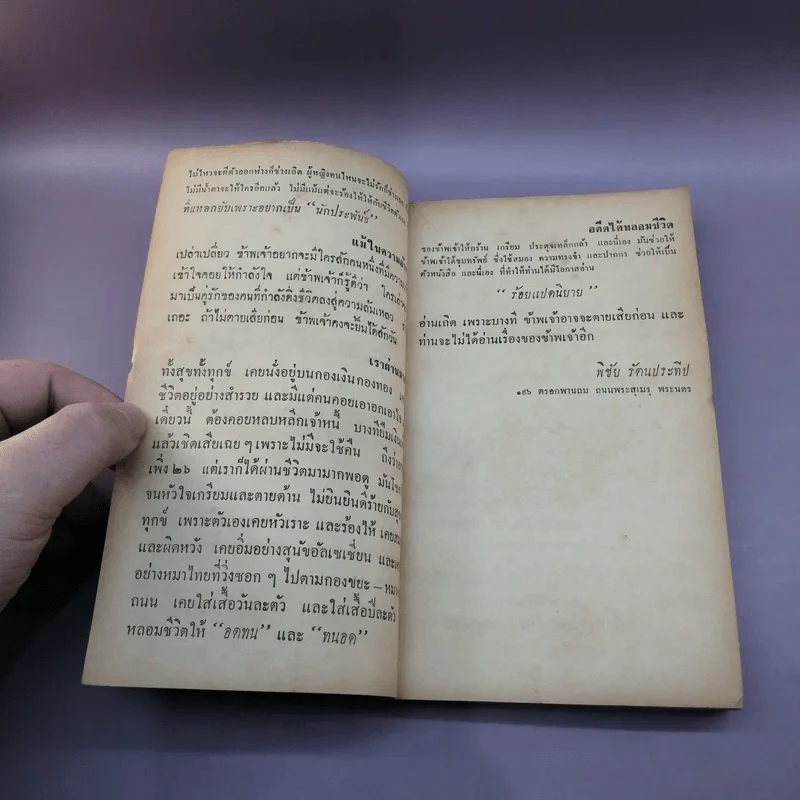 ไม่ไหวจะตีตัวออกห่างก็ช่างเถิด ผู้หญิงคนไหนจะไม่รักก็ช่าง
ไม่มีน้ำตาจะให้ใครอีกแล้ว ไม่มีแม้แต่จะร้องไห้ให้กับชีวิต
ที่แหลกยับเพราะอยากเป็น “นักประพันธ์”
แม้ในความ
เปล่าเปลี่ยว ข้าพเจ้าอยากจะมีใครสักคนหนึ่งที่มีความ
เข้าใจคอยให้กำลังใจ แต่ข้าพเจ้าก็รู้ดีว่า ใครเล่า
มาเป็นคู่รักของคนที่กำลังดิ่งชีวิตลงสู่ความล้มเหลว
เถอะ ถ้าไม่ตายเสียก่อน ข้าพเจ้าคงจะยิ้มได้สักวัน
เราผ่าน
ทั้งสุขทั้งทุกข์ เคยนั่งอยู่บนกองเงินกองทอง
ชีวิตอยู่อย่างสำรวย และมีแต่คนคอยเอาอกเอาใจ
เดี๋ยวนี้ ต้องคอยหลบหลีกเจ้าหนี้ บางทียืมเงิน
แล้วเชิดเสียเฉย ๆ เพราะไม่มีจะใช้คืน ถึงว่า
เพิ่ง ๒๖ แต่เราก็ได้ผ่านชีวิตมามากพอดู มัน
จนหัวใจเกรียมและตายด้าน ไม่ยินยินดีร้ายกับ
ทุกข์ เพราะตัวเองเคยหัวเราะ และร้องไห้
และผิดหวัง เคยอิ่มอย่างสุนัขอัลเซเชี่ยน และ
อย่างหมาไทยที่วิ่งซอก ๆ ไปตามกองขยะ—
ถนน เคยใส่เสื้อวันละตัว และใส่เสื้อปีละตัว
หลอมชีวิตให้ “อดทน” และ “ทนอด”
อดีตได้หลอมชีวิต
ของข้าพเจ้าให้กร้าน เกรียม ประดุจเหล็กกล้า และนี่เอง มันช่วยให้
ข้าพเจ้าได้ขุมทรัพย์ ซึ่งใช้สมอง ความทรงจำ และปากกา ช่วยให้เป็น
ตัวหนังสือ และนี่เอง ที่ทำให้ท่านได้มีโอกาสอ่าน
“ร้อยแปดนิยาย”
อ่านเถิด เพราะบางที ข้าพเจ้าอาจจะตายเสียก่อน และ
ท่านจะไม่ได้อ่านเรื่องของข้าพเจ้าอีก
พิชัย รัตนประทีป
๑๙๖ ตรอกพานถม ถนนพระสุเมรุ พระนคร